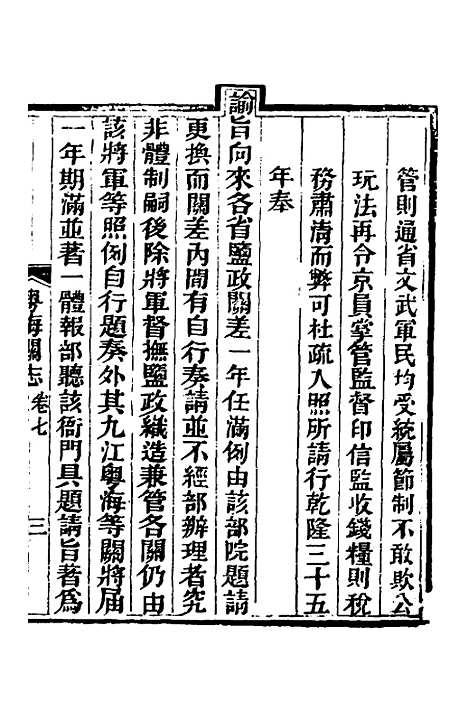 管則通省文武軍民均受統屬節制不敢欺公
玩法再令京員掌管監督印信監收錢糧則稅
務肅清而弊可杜疏入照所請行乾隆三十五
年奉
諭旨向來各省鹽政關差一年任滿例由該部院題請
更換而關差內間有自行奏請並不經部辦理者究
非體制嗣後除將軍督撫鹽政織造兼管各關仍由
該將軍等照例自行題奏外其九江粵海等關將届
一年期滿並著一體報部聽該衙門具題請旨著為
粵海關志 卷七 三